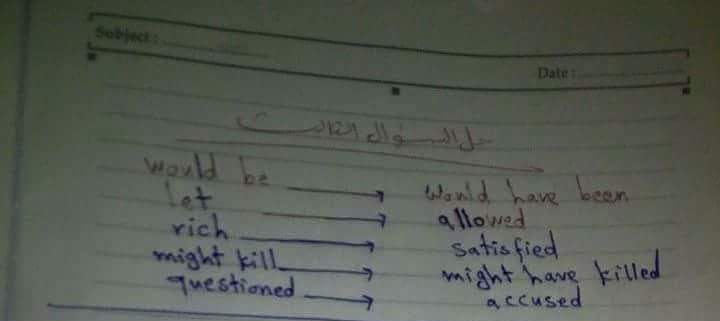 Subject:
Date:
حل السؤال الثالث
would be → would have been
let → allowed
rich → satisfied
might kill → might have killed
questioned → accused